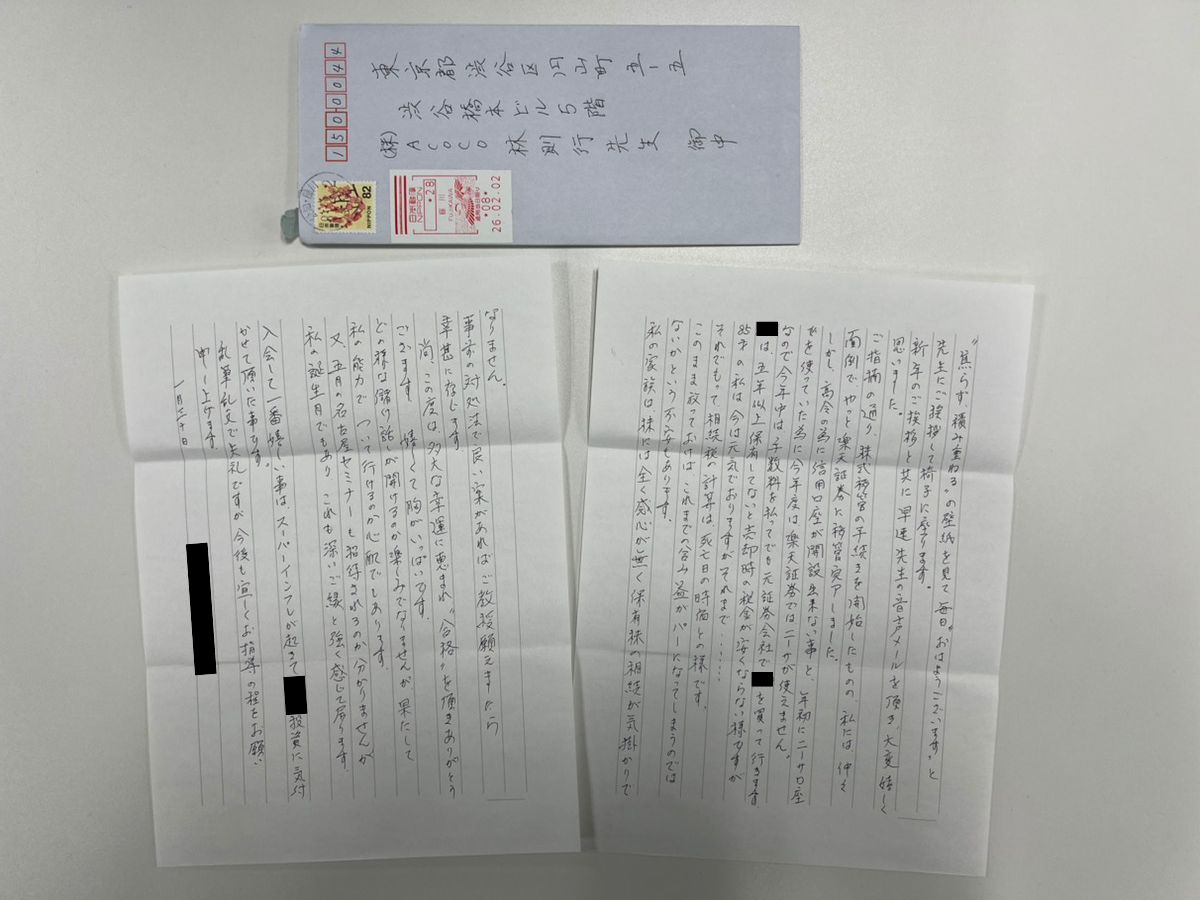 1500044
東京都渋谷区円山町五-五
渋谷橋本ビル5階
(株)ACOCO 林則行先生 御中
82
NIPPON
日本郵便
NIPPON
*28
FUJIKAWA
*08*
26.02.02
"焦らず積み重ねる"の壁紙を見て毎日"おはようございます"と
先生にご挨拶して椅子に座ります。
新年のご挨拶と共に早速先生の音声メールを頂き、大変嬉しく
思いました。
ご指摘の通り、株式移管の手続きを開始したものの、私には仲々
面倒でやっと楽天証券に移管完了しました。
しかし、高令の為に信用口座が開設出来ない事と、年初にニーサ口座
を使っていた為に今年度は楽天証券ではニーサが使えません。
なので今年中は手数料を払ってでも元証券会社で を買って行きます。
は、五年以上保有してないと売却時の税金が安くならない様ですが
85才の私は今は元気でおりますがそれまで……
それでもって相続税の計算は死亡日の時価との様です。
このまま放っておけばこれまでの含み益がパーになってしまうのでは
ないかという不安もあります。
私の家族は、株には全く感心が無く保有株の相続が気掛かりで
なりません。
事前の対処法で良い案があればご教授願えましたら
幸甚に存じます
尚、この度は、多大な幸運に恵まれ"合格"を頂きありがとう
ございます 嬉しくて胸がいっぱいです。
どの様な儲け話しが聞けるのか楽しみでなりませんが、果たして
私の能力で ついて行けるのか心配でもあります。
又、五月の名古屋セミナーも招待されるのか分かりませんが
私の誕生月でもあり これも深いご縁と強く感じて居ります。
入会して一番嬉しい事は、スーパーインフレが起きて 投資に気付
かせて頂いた事です。
乱筆乱文で失礼ですが今後も宜しくお指導の程をお願い
申し上げます。
一月三十日